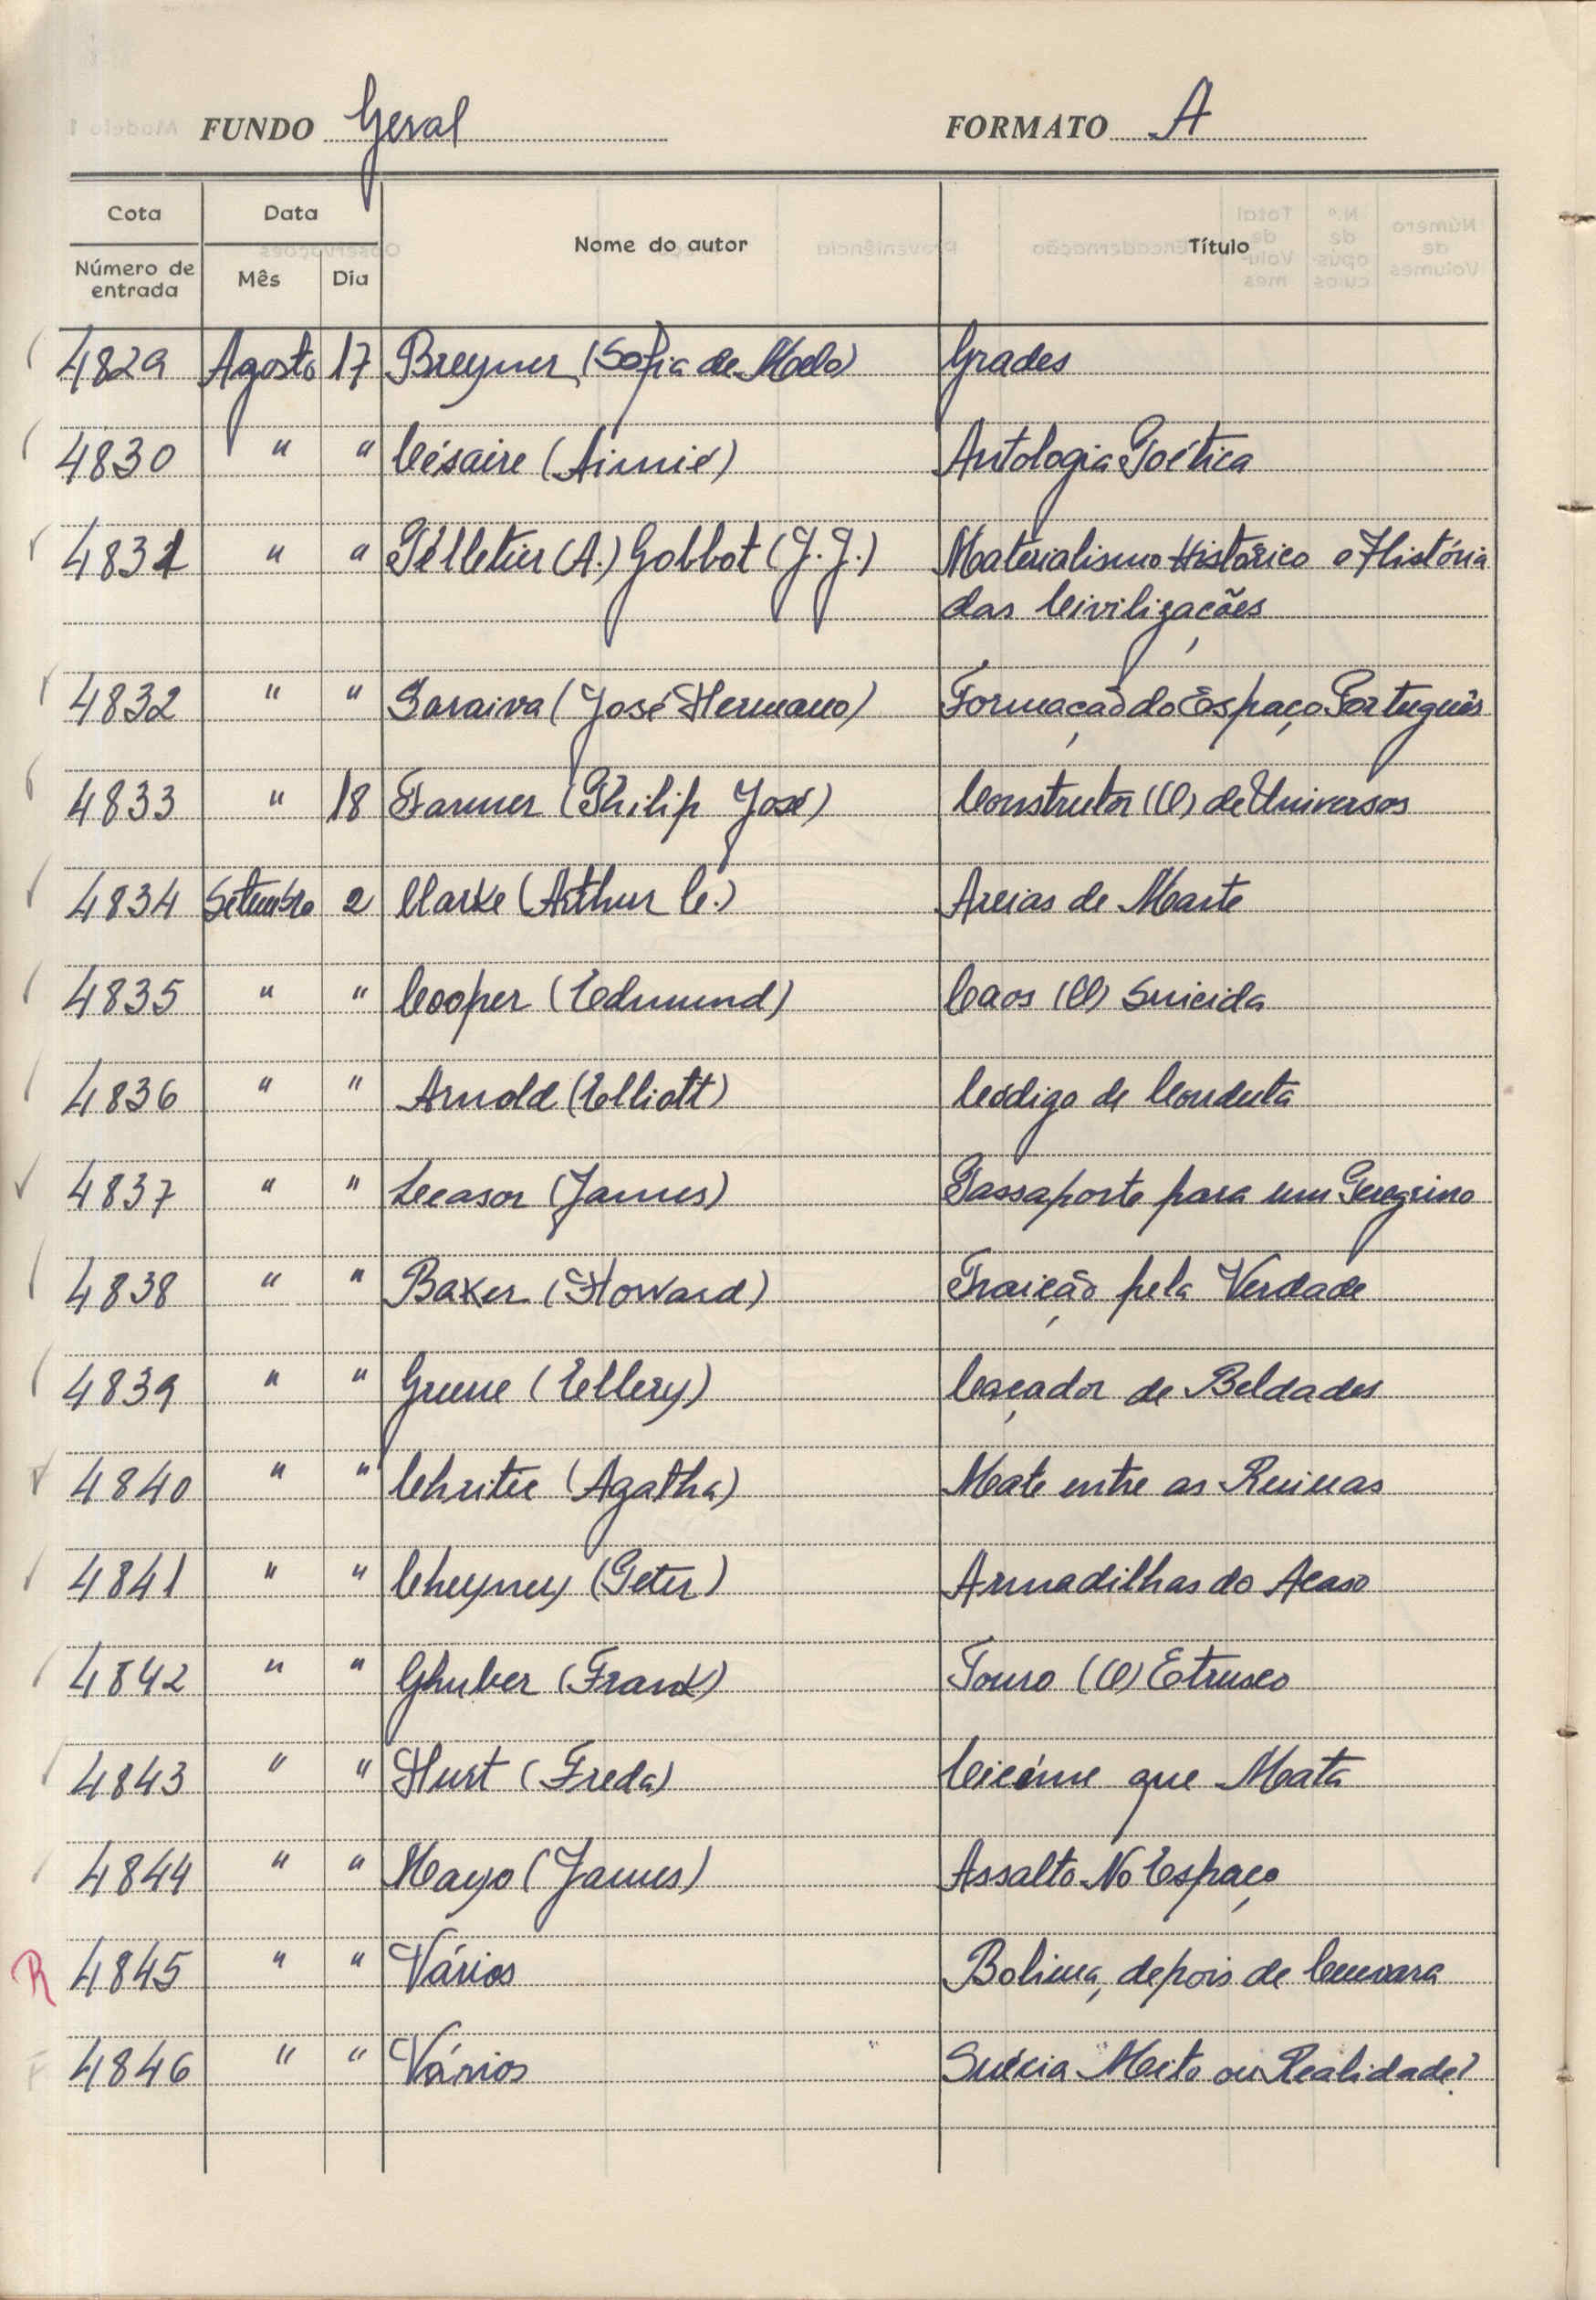 FUNDO Geral FORMATO A
Cota Data Nome do autor Título
Número de entrada Mês Dia
4829 Agosto 17 Breyner (Sofia de Melo) Grades
4830 " " Césaire (Aimié) Antologia Poética
4831 " " Pélletier (A.) Gobbot (J. J.) Materialismo Histórico e História
das Civilizações
4832 " " Saraiva (José Hermano) Formação do Espaço Português
4833 " 18 Farmer (Philip José) Construtor (O) de Universos
4834 Setembro 2 Clarke (Arthur C.) Areias de Marte
4835 " " Cooper (Edmund) Caos (O) Suicida
4836 " " Arnold (Elliott) Código de Conduta
4837 " " Leasor (James) Passaporte para um Peregrino
4838 " " Baker (Howard) Traição pela Verdade
4839 " " Queene (Ellery) Caçador de Beldades
4840 " " Chritie (Agatha) Mate entre as Ruinas
4841 " " Cheyney (Peter) Armadilhas do Acaso
4842 " " Ghuber (Frank) Touro (O) Etrusco
4843 " " Hurt (Freda) Ciúme que Mata
4844 " " Mayo (James) Assalto No Espaço
R 4845 " " Vários Bolivia, depois de Guevara
4846 " " Vários Suécia Mito ou Realidade?